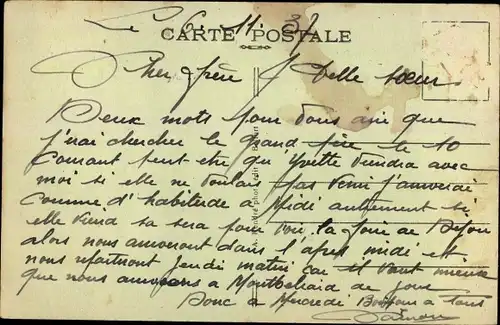 Le 6. 11. 37
CARTE POSTALE
Cher frère & Belle sœur
Deux mots pour vous dire que
j'irai chercher le grand père le 10
Courant peut etre qu Yvette viendra avec
moi si elle ne voulai pas venir j'ariverai
Comme d'habitude a Midi autrement si
elle viend sa sera pour voir la foire de Dijon
alors nous ariveront dans l'apres midi et
nous repartiront Jeudi matin car il vaut mieux
que nous arrivions a Montbeliard de jour
Donc a Mercredi Bonjour a Tous